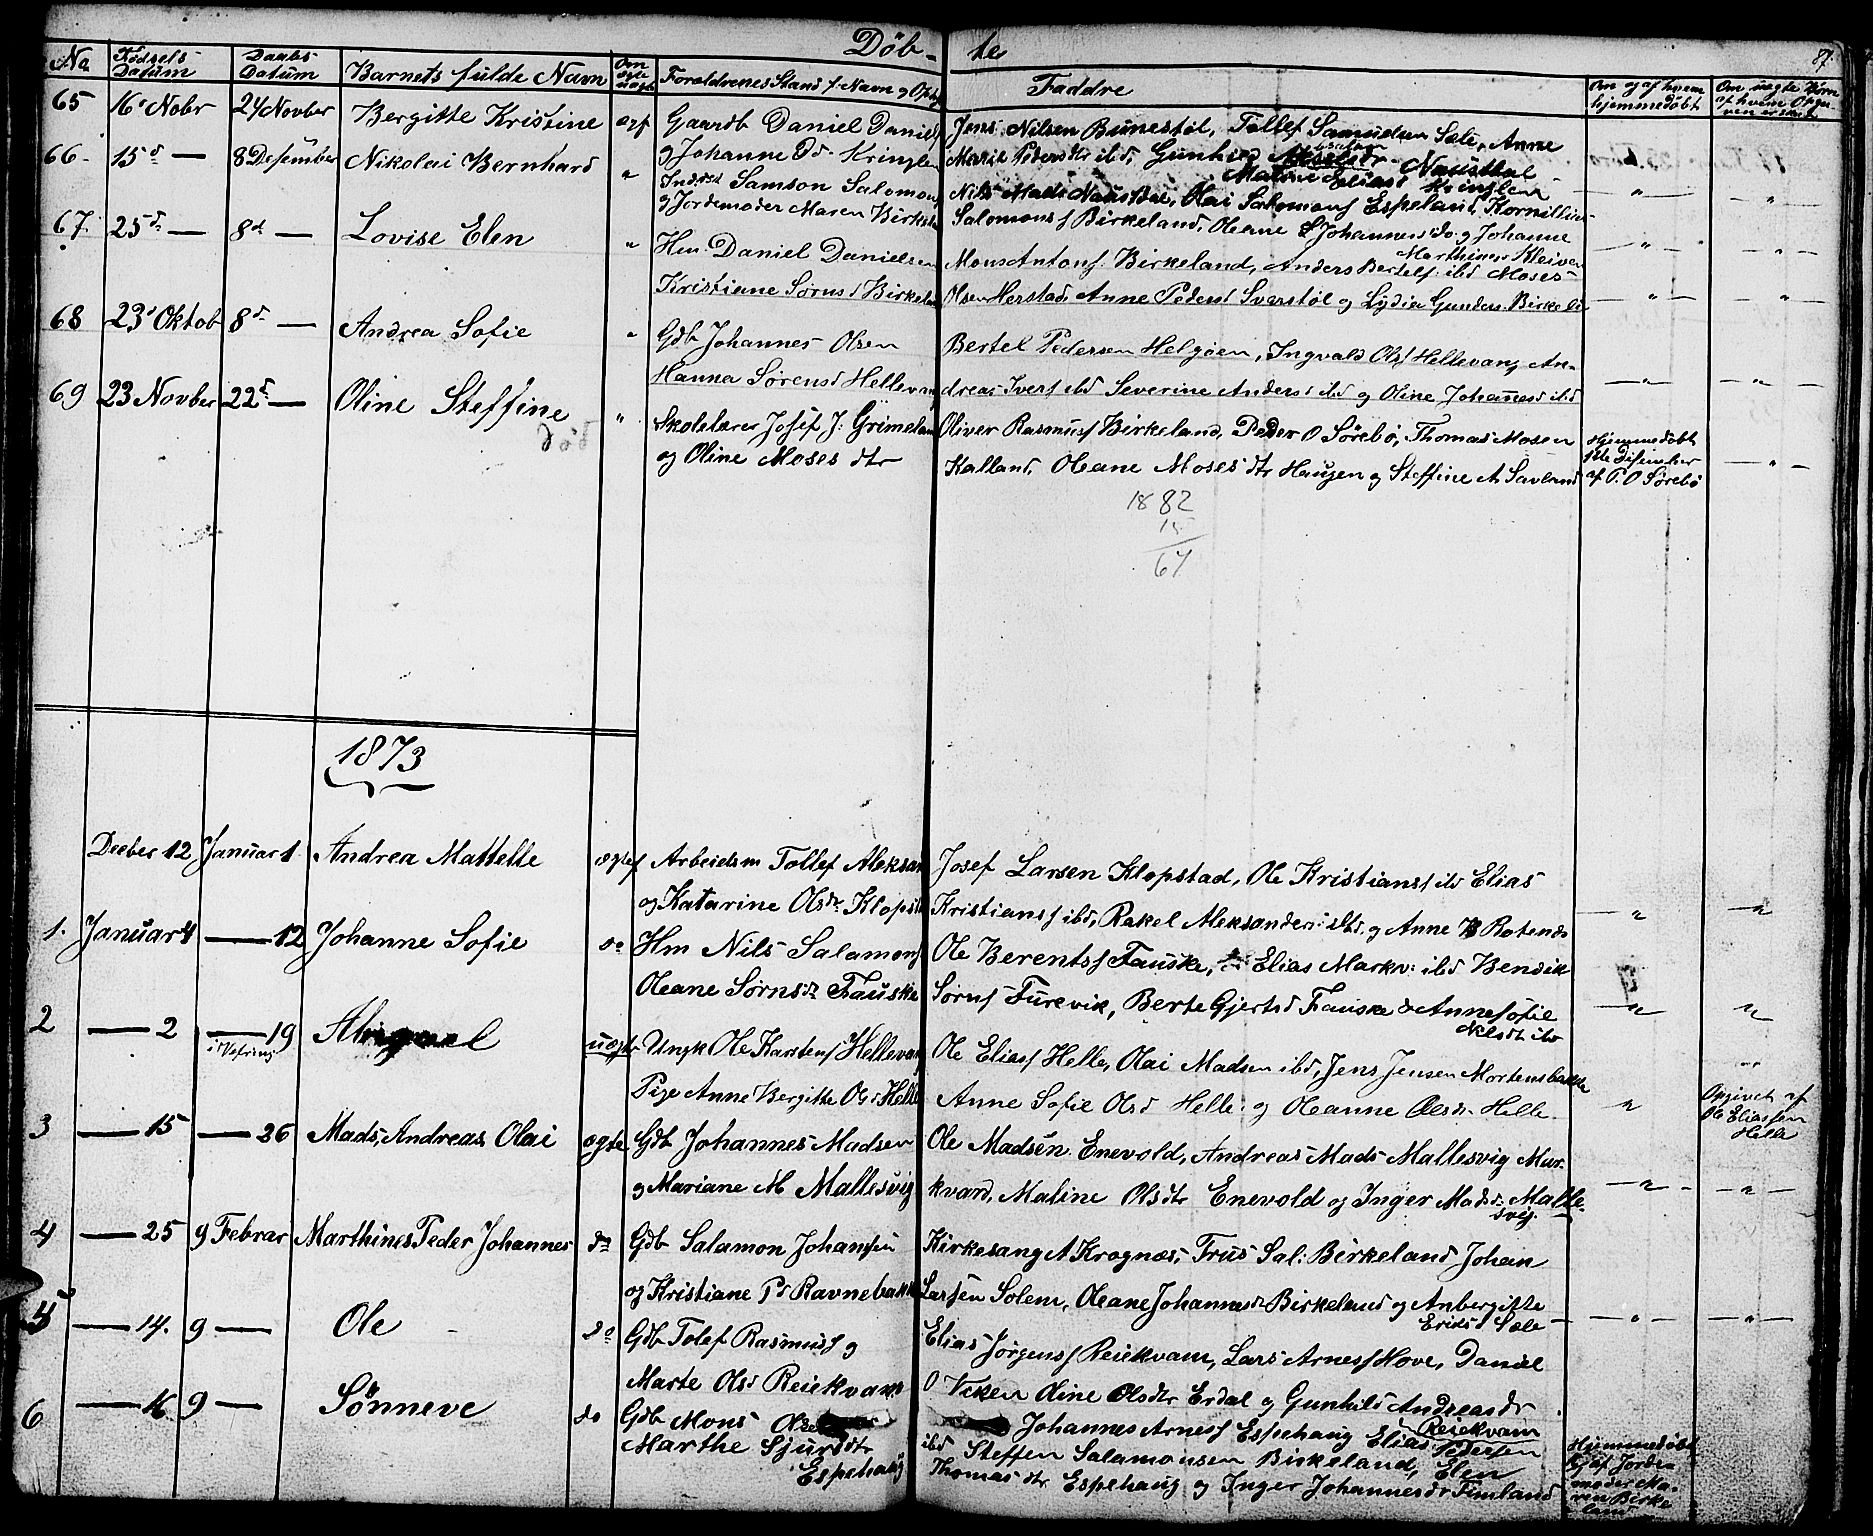 Döb- te
87.
No
Fødsels Datum
Daabs Datum
Barnets fulde Navn
Om ægte uægte
Forældrenes Stand f. Navn og Op
Faddre
Om og af hvem hjemmedöbt
Om uægte Börn af hvem Opgiven er skeet
65 16' Nobr 24 Novber Bergitte Kristine ægt Gaardb Daniel Daniels
og Johanne Kringlen
Jens Nilsen Bunestöl, Tollef Samuelsen Sæle, Anne
Marie Pedersdtr ibd, Gunhild Nausdal
Malene Eliasd Kringlen
66 15d — 8 Desember Nikolai Bernhard " Indrst Samson Salomons
og Jordemoder Maren Birkeld
Nils Mads Nausdal, Olai Salomons Espeland, Kornillius
Salomons Birkeland, Oleane Johannesd do. og Johanne
Marthines Kleiven
67. 25d — 8d — Lovise Elen " Hm Daniel Danielsen
Kristiane Sörnsd Birkelan
Mons Antons. Birkeland, Anders Bertels. ibd Moses
Olsen Herstad, Anne Pedersd Svarstöl og Lydia Gunders. Birkeld
68 23' Oktob 8d — Andrea Sofie " Gdb Johannes Olsen
Hanna Sörensd Hellevang
Bertel Pedersen Helgöen, Ingvald Ols Hellevang An-
dreas Ivers ibd Severine Andersd ibd og Oline Johanesd ibd
69 23 Novber 22d — Oline Steffine " Skolelærer Josef J. Grimeland
og Oline Moses dtr
Oliver Rasmuss Birkeland, Peder O Sörebö, Thomas Mosen
Kalland, Oleane Moses dtr Haugen og Steffine A Savland
Hjemmedöbt
1ste Disember
af P. O Sörebö
död
1882
15
67
1873
Decber 12 Januar 1 Andrea Mattette ægtef Arbeidsm Tollef Aleksan
og Katarine Olsdr Klopst
Josef Larsen Klopstad, Ole Kristians ibd Elias
Kristians ibd, Rakel Aleksanders ibd, og Anne B Rotende
1. Januar 4 — 12 Johanne Sofie do Hm Nils Salamons
Oleane Sörnsdr Fauske
Ole Berents Fauske, Elias Markv: ibd Bendik
Sörns Furevik, Berte Gjertsd Fauske & Anne Sofie
Nelsdt ibd
2 — 2 — 19
i Vefring
uægte Ungk Ole Karstens Hellevan
Pige Anne Bergitte Olsd Helle
Ole Elias Helle, Olai Madsen ibd, Jens Jensen Mortensbakke
Anne Sofie Olsd Helle og Oleanne Olsdr Helle
Opgivet af
Ole Eliassen
Helle
3 — 15 — 26 Mads, Andreas Olai ægte Gdb Johannes Madsen
og Mariane M Mallesvig
Ole Madsen Enevold, Andreas Mads Mallesvig Mar-
kvard, Maline Olsdtr Enevold og Inger Madsd Malle-
svig
4 — 25 9 Febrar Marthines Peder Johannes do Gdb Salamon Johansen
og Kristiane Pd Ravnebakk
Kirkesang A Krognæs, Trus Sal: Birkeland Johan
Larsen Solem, Oleane Johannesdr Birkeland og Anbergitte
Eriksd Sæle
5 — 14. 9 — Ole do Gdb Tolef Rasmuss og
Marte Olsd Reiekvam
Elias Jörgens Reiekvam, Lars Arness Hove, Daniel
O Veken Oline Olsdtr Erdal og Gunhild Andreasdr
Reiekvam
6 — 16 9 — Sönneve do Gdb Mons
Marthe Sjurdtr
Espehaug
Johannes Arness Espehaug Elias Pedersen
ibd Steffen Salamonsen Birkeland, Elen
Thomas dtr Espehaug og Inger Johannesdr Timland
Hjemmedöbt
af Jorde-
moder Ma-
ren Birke
land